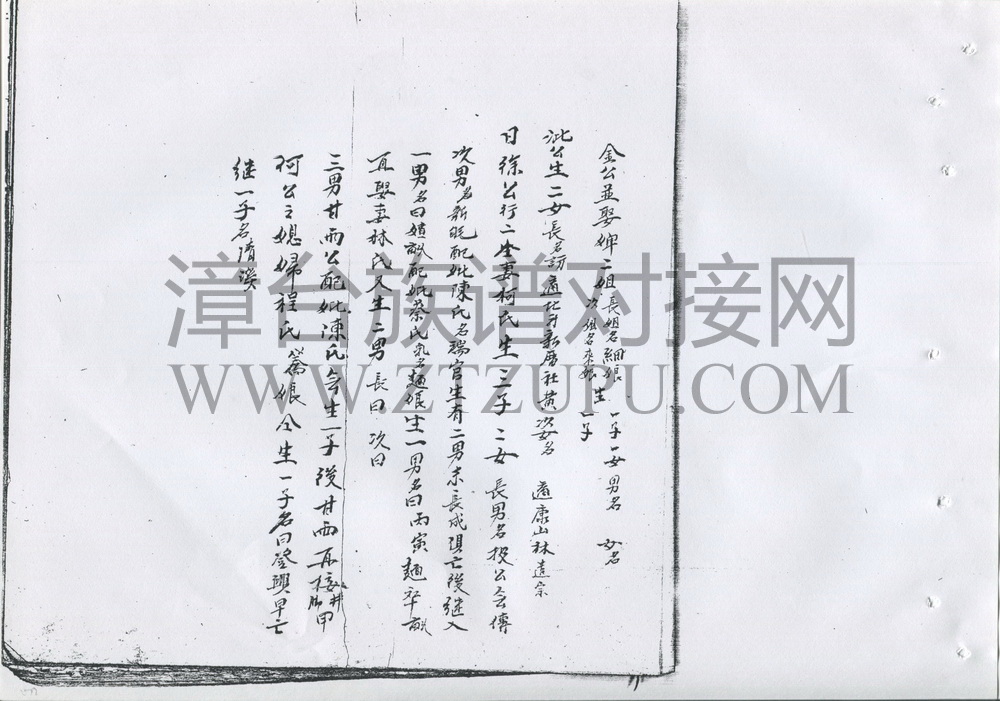 金公並娶婢二姐長姐名細娘生一子一女男名 女名
次姐名来娘 一子
泚公生二女長名訪適北斗新厝社黄 次名 適康山林造宗
日徐公行二坐妻柯氏生三子二女長男名投公会傳
次男名新配妣陳氏名瑞官生有二男未長成俱亡後継入
一男名曰配妣蔡氏乳名麺娘生一男名曰丙寅麺卒
再娶妻林氏又生二男長曰 次曰
三男甘雨公配妣陳氏合生一子後甘雨再接井甲
柯公之媳婦程氏娘合生一子名曰登興早亡
継一子名清溪
漳台族谱对接网
WWW.ZTZUPU.COM